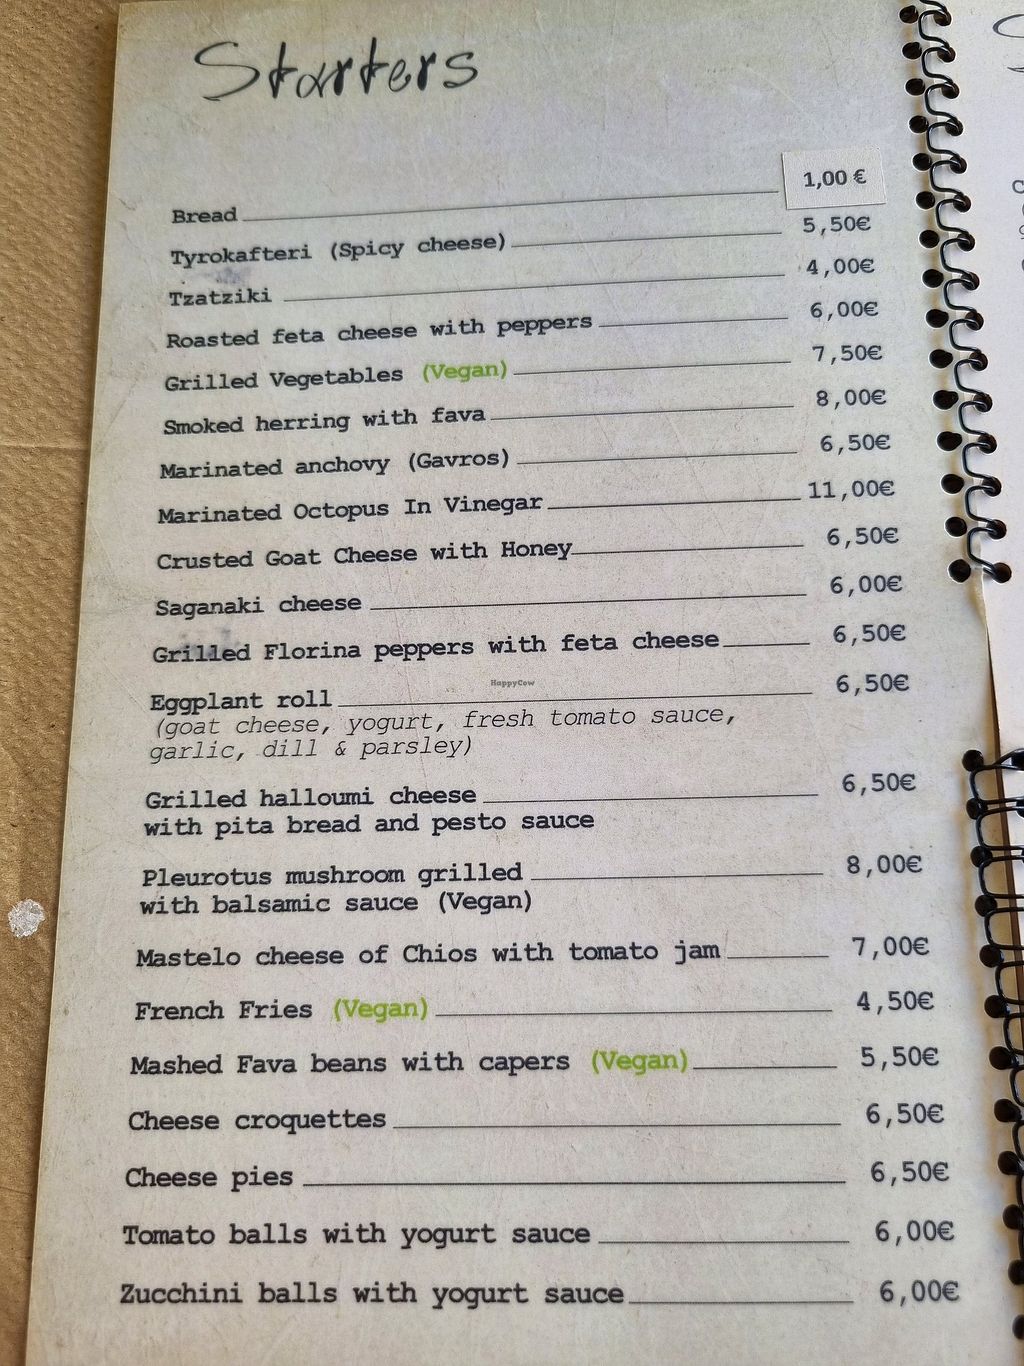 Starters
Bread 1,00 €
Tyrokafteri (Spicy cheese) 5,50€
Tzatziki 4,00€
Roasted feta cheese with peppers 6,00€
Grilled Vegetables (Vegan) 7,50€
Smoked herring with fava 8,00€
Marinated anchovy (Gavros) 6,50€
Marinated Octopus In Vinegar 11,00€
Crusted Goat Cheese with Honey 6,50€
Saganaki cheese 6,00€
Grilled Florina peppers with feta cheese 6,50€
HappyCow
Eggplant roll 6,50€
(goat cheese, yogurt, fresh tomato sauce,
garlic, dill & parsley)
Grilled halloumi cheese 6,50€
with pita bread and pesto sauce
Pleurotus mushroom grilled 8,00€
with balsamic sauce (Vegan)
Mastelo cheese of Chios with tomato jam 7,00€
French Fries (Vegan) 4,50€
Mashed Fava beans with capers (Vegan) 5,50€
Cheese croquettes 6,50€
Cheese pies 6,50€
Tomato balls with yogurt sauce 6,00€
Zucchini balls with yogurt sauce 6,00€